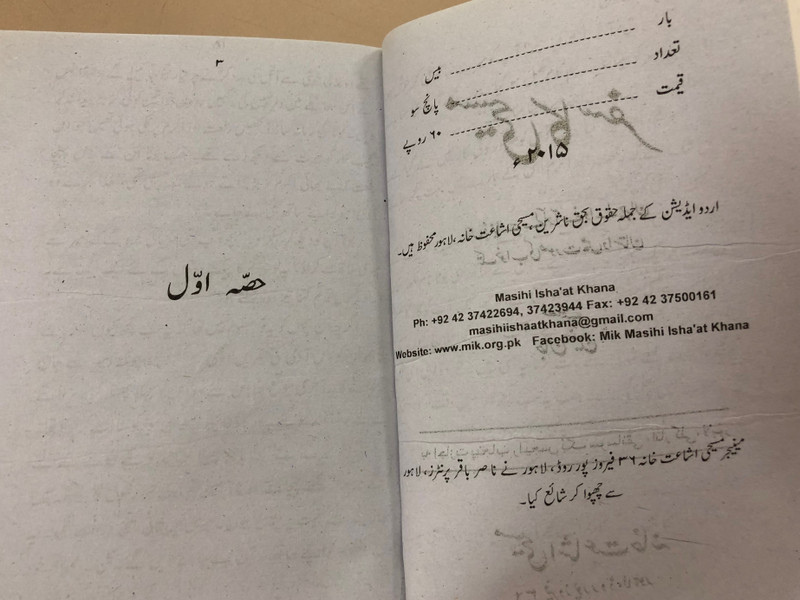 بار ------------ بیس
تعداد ------------ پانچ سو
قیمت ------------ ۶۰ روپے
۲۰۱۵ء
اردو ایڈیشن کے جملہ حقوق بحق ناشرین، مسیحی اشاعت خانہ، لاہور محفوظ ہیں۔
Masihi Isha'at Khana
Ph: +92 42 37422694, 37423944 Fax: +92 42 37500161
masihiishaatkhana@gmail.com
Website: www.mik.org.pk Facebook: Mik Masihi Isha'at Khana
مینیجر مسیحی اشاعت خانہ ۳۶ فیروز پور روڈ، لاہور نے ناصر باقر پرنٹرز، لاہور
سے چھپوا کر شائع کیا۔
۳
حصّہ اوّل